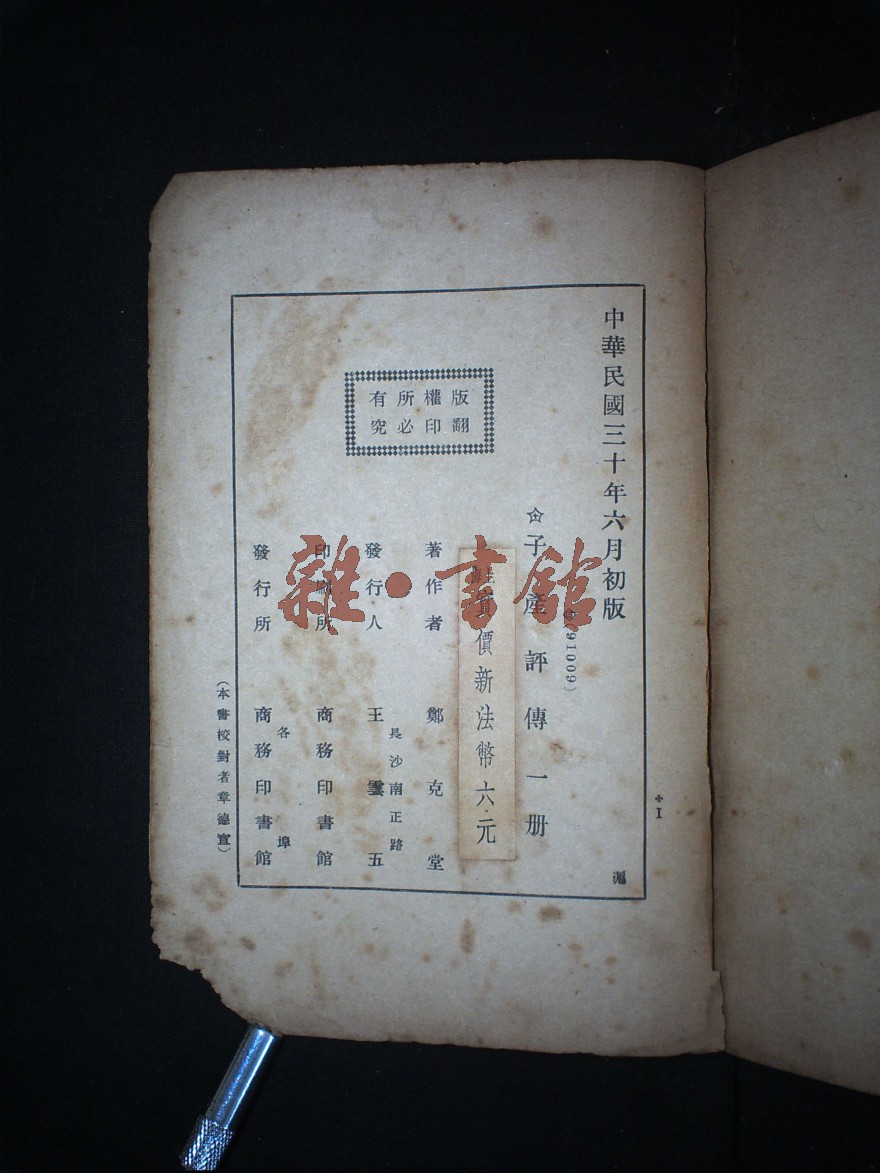 中華民國三十年六月初版
版權所有
翻印必究
子產評傳一册
91009）
實價新法幣六元
著作者 鄭克堂
發行人 王雲五
長沙南正路
印刷所 商務印書館
發行所 商務印書館
各埠
（本書校對者章德宣）
滬
I
雜·書館